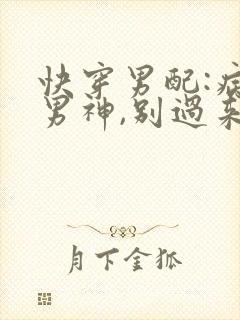 快穿男配:病
男神,别過来
月下金狐